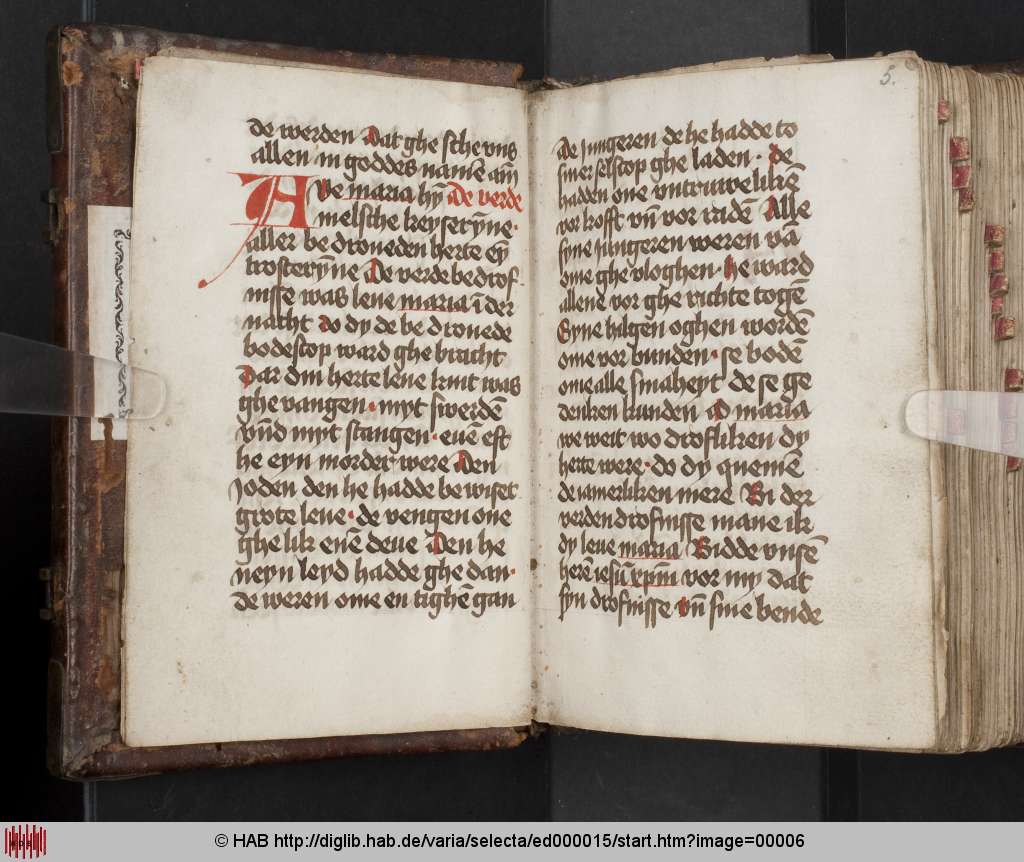 de werden Dat ghe sche vns
allen in goddes namē amē
AVe maria hȳ De verde
melsche keyserȳne·
aller be droueden herte eȳ
trosterȳne De verde bedrof-
nisse was leue maria ī der
nacht do dy de be drouede
bodescop ward ghe bracht
Dar din herte leue kint was
ghe vangen · myt swerdē
vn̄d myt stangen · euē eft
he eyn morder were Den
Joden den he hadde be wiset
grote leue · de vengen one
ghe lik enē deue Den he
neyn leyd hadde ghe dan·
de weren ome en tighē gan
5.
De Jungeren de he hadde to
siner selscop ghe laden · de
hadden one vntruweliken
vor kofft vn̄ vor radē Alle
syne jungeren weren vā
one ghe vloghen · he ward
allene vor ghe richte togē
Syne hilgen oghen wordē
ome vor bunden · se bodē
ome alle smaheyt de se ge
denken kunden O maria
we weit wo drofliken dy
herte were · do dy quemē
de iamerliken mere Bi der
verden drofnisse mane ik
dy leue maria Bidde vnsē
herē iesū xpm̄ vor my dat
syn drofnisse vn̄ sine bende
© HAB http://diglib.hab.de/varia/selecta/ed000015/start.htm?image=00006